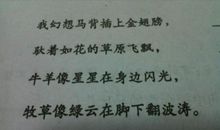 我幻想马背插上金翅膀，
驮着如花的草原飞飘，
牛羊像星星在身边闪光，
牧草像绿云在脚下翻波涛。